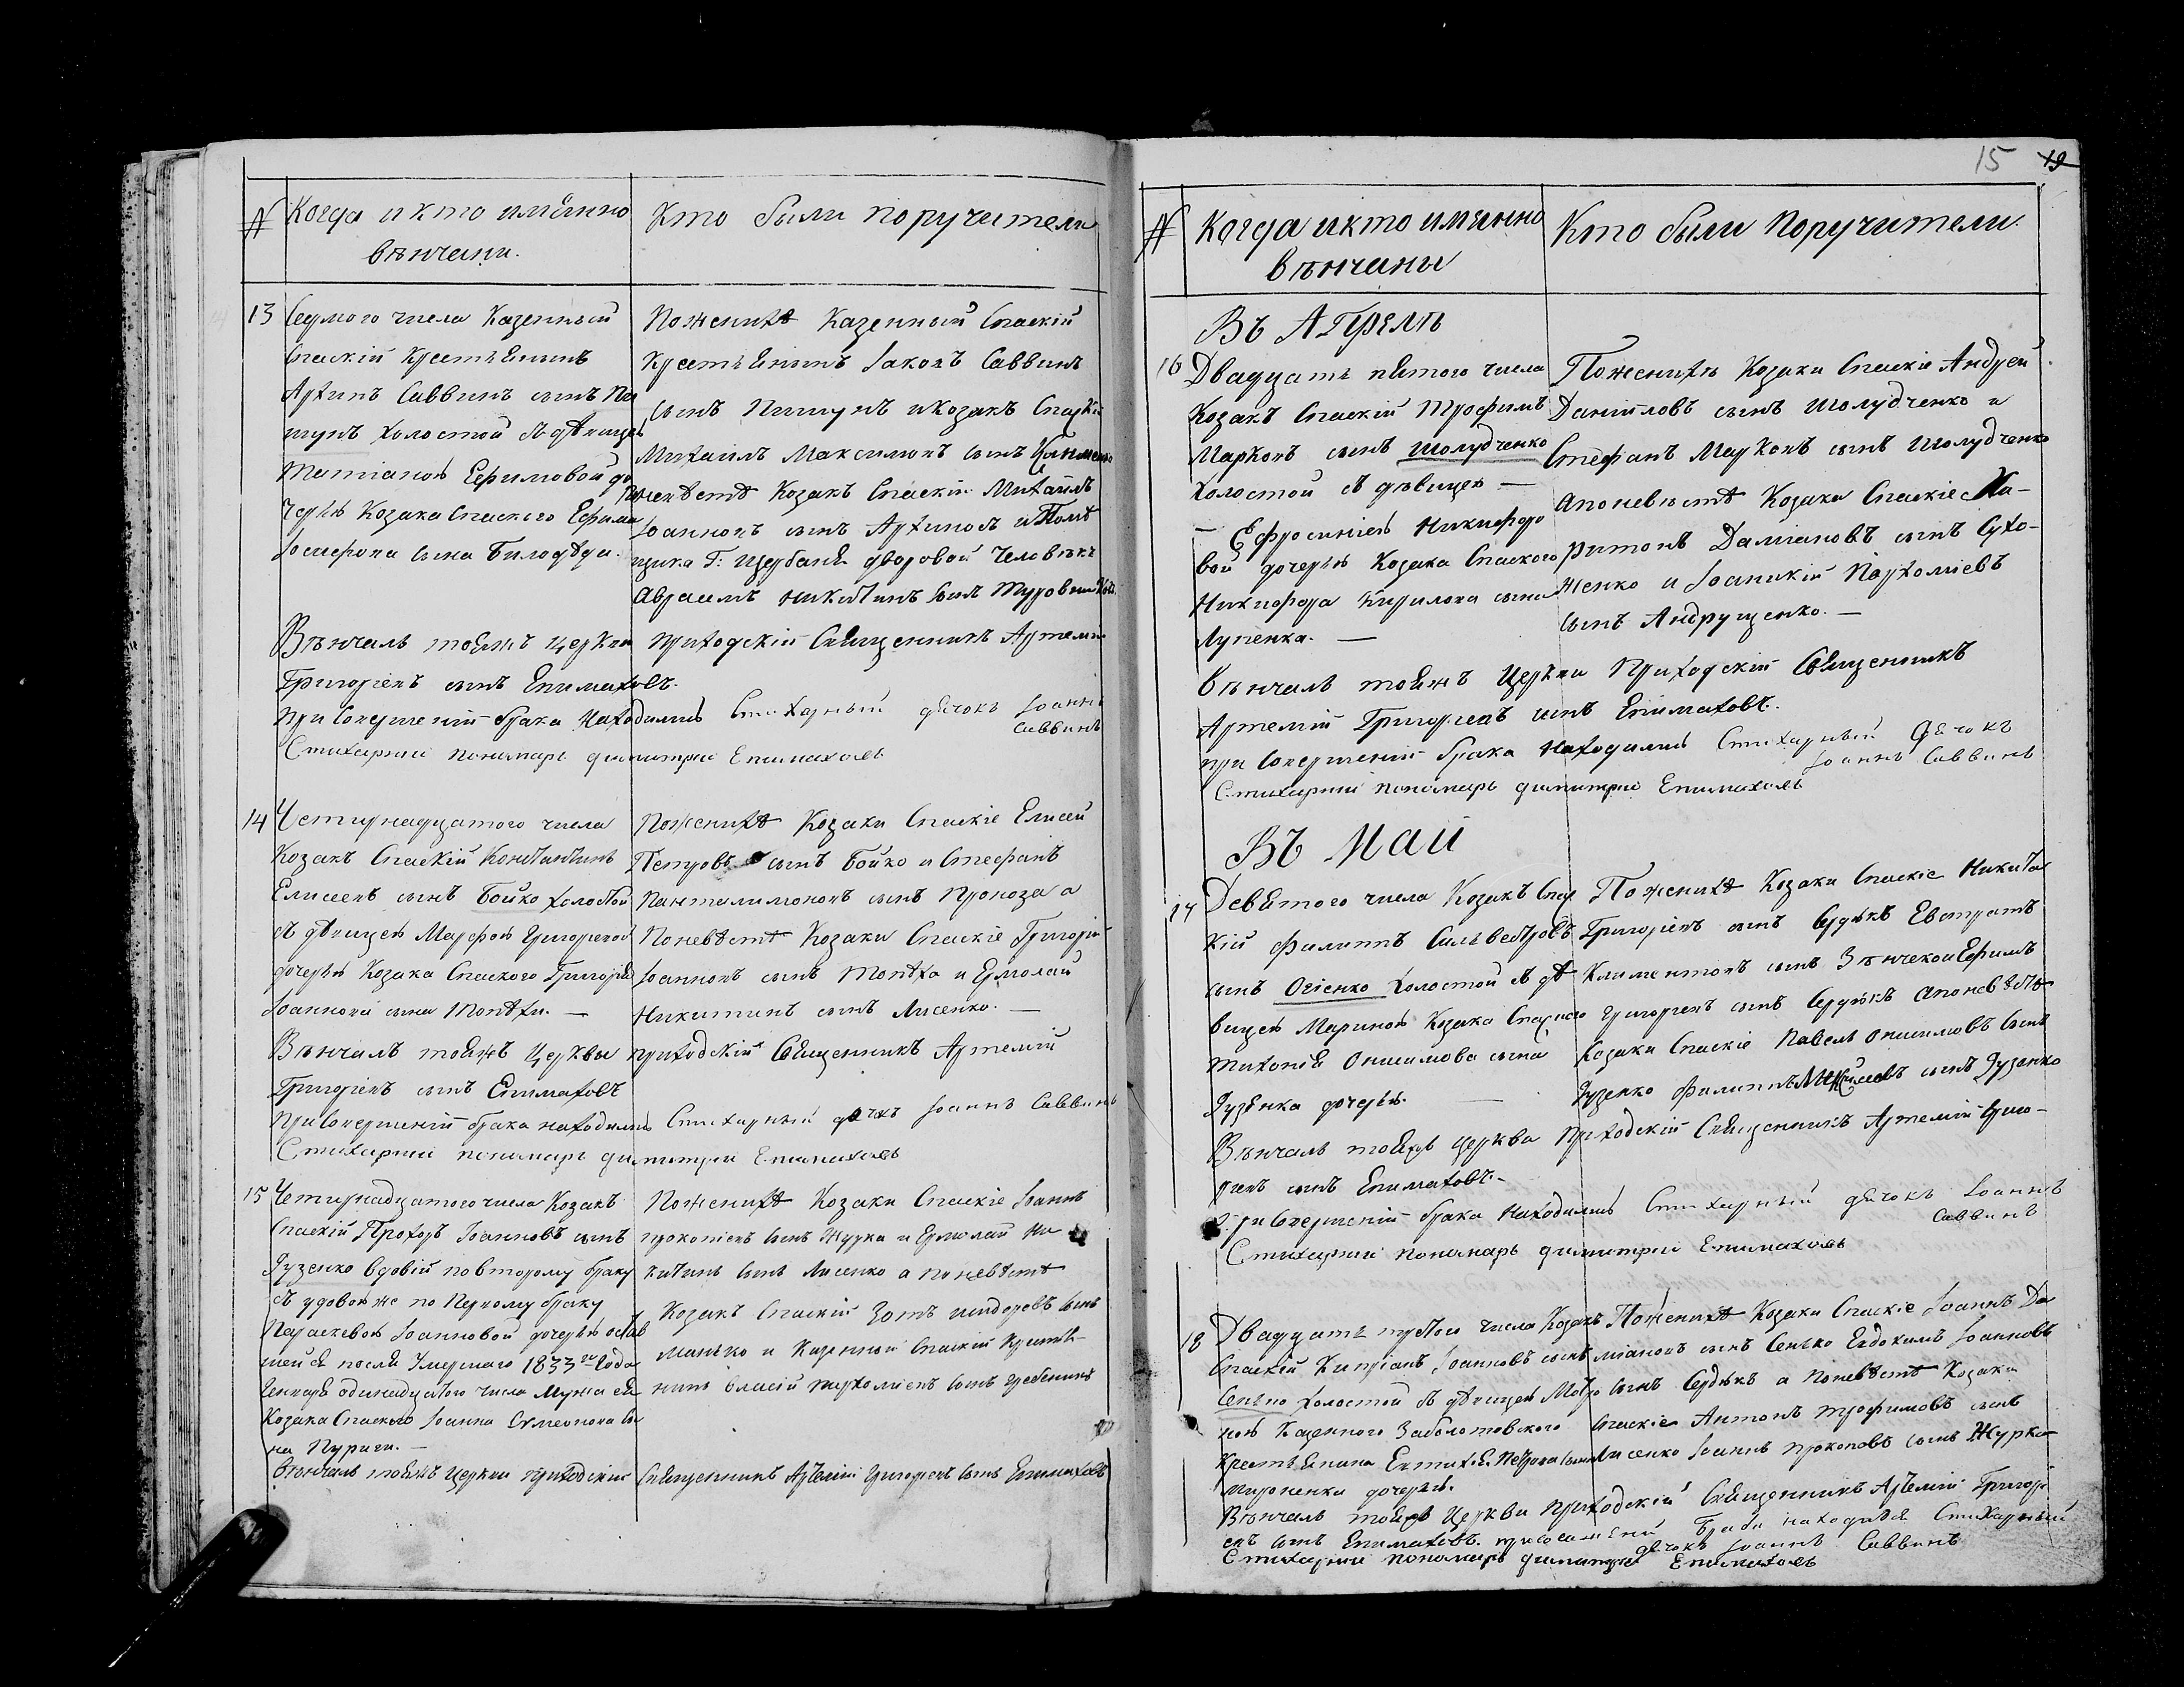 № Когда и кто имянно вѣнчани. Кто были поручители
13 Седмого числа Казенный
Спаскій Крестьенинъ
Архипъ Саввинъ сынъ Пи
шунъ холостой съ дѣвицею
Татіаною Ефимовой до
черью Козака Спаского Ефима
Іосифова сына Білодѣда.
Пожениху Казенный Спаскій
Крестьенинъ Іаковъ Саввинъ
сынъ Пишунъ и Козакъ Спаскій
Михаилъ Максимовъ сынъ
Поневѣстѣ Козакъ Спаскій Михаилъ
Іоанновъ сынъ Архиповъ и Помѣ
щика Г: Щербаня дворовой Человѣкъ
Авраамъ Никитинъ сынъ
Вѣнчалъ тояжъ церкви приходскій Священникъ Артемій
Григоріевъ сынъ Епимаховъ.
при Совершеній брака находились Стихарный дячокъ Іоаннъ
Саввинъ
Стихарній пономарь димитрій Епимаховъ
14 Четирнадцатого числа
Козакъ Спаскій Константинъ
Елисеевъ сынъ Бойко холостой
съ дѣвицею Марфою Григоревой
дочерью Козака Спаского Григорія
Іоаннова сына Мотѣхи. —
Пожениху Козаки Спаскіе Елисей
Петровъ сынъ Бойко и Стефанъ
Пантелимоновъ сынъ Проноза а
Поневѣстѣ Козаки Спаскіе Григорій
Іоанновъ сынъ Мотѣха и Ермолай
Никитинъ сынъ Лисенко. —
Вѣнчалъ тояжъ Церквы приходскій Священникъ Артемій
Григоріевъ сынъ Епимаховъ
При Совершеній брака находились Стихарный дячокъ Іоаннъ Саввинъ
Стихарній пономарь димитрій Епимаховъ
15 Четирнадцатого числа Козакъ
Спаскій Прохоръ Іоанновъ сынъ
Гузенко вдовій повторому браку
съ удовою же по Первому браку
Параскевою Іоанновой дочерью остав
шейся посля Умершаго 1833го Года
Генваря одинадцатого числа Мужа ея
Козака Спаского Іоанна Симеонова сы
на Пуриги. —
Пожениху Козаки Спаскіе Іоаннъ
прокопіевъ сынъ Журка и Ермолай Ни
китинъ сынъ Лисенко а поневѣстѣ
Козакъ Спаскій Зотъ сынъ
Манько и Казенной Спаскій Крестѣ-
нинъ Власій Пархоміевъ сынъ Гребеникъ
Вѣнчалъ тояжъ Церкви приходскій Священникъ Артемій Григоріевъ сынъ Епимаховъ
15 19
№ Когда и кто имянно вѣнчаны Кто были Поручители.
Въ Апрелѣ
16 Двадцать пятого числа
Козакъ Спаскій Трофимъ
Марковъ сынъ Шолудченко
холостой съ дѣвицею —
— Ефросиніею Никифоро
вой дочерью Козака Спаского
Никифора Кирилова сына
Лупенка. —
Пожениху Козаки Спаскіе Андрей
Даніиловъ сынъ Шолудченко и
Стефанъ Марковъ сынъ Шолудченко
а поневѣстѣ Козаки Спаскіе Ха-
ритонъ Даміановъ сынъ Сухо-
женко и Іоаникій Пархоміевъ
сынъ Андрущенко. —
Вѣнчалъ тояжъ Церкви Приходскій Священникъ
Артемій Григоріевъ сынъ Епимаховъ.
при Совершеній брака находились Стихарный дячокъ
Іоаннъ Саввинъ
Стихарній пономарь димитрій Епимаховъ
Въ Маи
17 Девятого числа Козакъ Спас
кій Филиппъ Сильвестровъ
сынъ Огіенко холостой съ дѣ
вицею Мариною Козака Спаского
Тихонія Онисимова сына
Гузѣнка дочерью. —
Пожениху Козаки Спаскіе Никита
Григоріевъ сынъ Сердюкъ Евстратъ
Климентовъ сынъ Ефимъ
Григоріевъ сынъ Сердюкъ а поневѣстѣ
Козаки Спаскіе Павелъ Онисимовъ сынъ
Гузенко Филиппъ сынъ Гузенко
Вѣнчалъ тояжъ церкви Приходскій Священникъ Артемій Григо-
ріевъ сынъ Епимаховъ. —
при Совершеній брака находились Стихарный дячокъ Іоаннъ
Саввинъ
Стихарній пономарь димитрій Епимаховъ
18 Двадцать числа Козакъ
Спаскій Кипріанъ Іоанновъ сынъ
Сенько холостой съ дѣвицею Мотро
ною Казенного Заболотовского
Крестьянина Евтихія Петрова сына
Мироненка дочерью.
Пожениху Козаки Спаскіе Іоаннъ Да
міановъ сынъ Сенько Евдокимъ Іоанновъ
сынъ Сердюкъ а поневѣстѣ Козаки
Спаскіе Антонъ Трофимовъ сынъ
Лисенко Іоаннъ прокоповъ сынъ Журка
Вѣнчалъ тояжъ Церкви Приходскій Священникъ Артемій Григорі
евъ сынъ Епимаховъ. при брака находился Стихарный
дячокъ Іоаннъ Саввинъ
Стихарній пономарь димитрій Епимаховъ